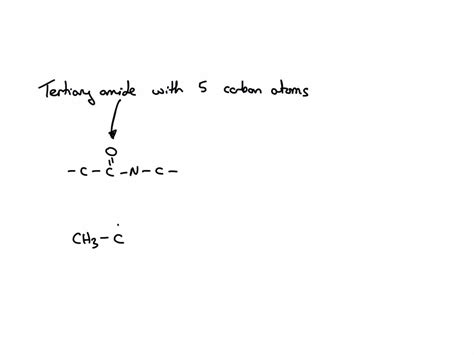 Tertiary amide with 5 carbon atoms
O
- C - C - N - C -
CH3 - C